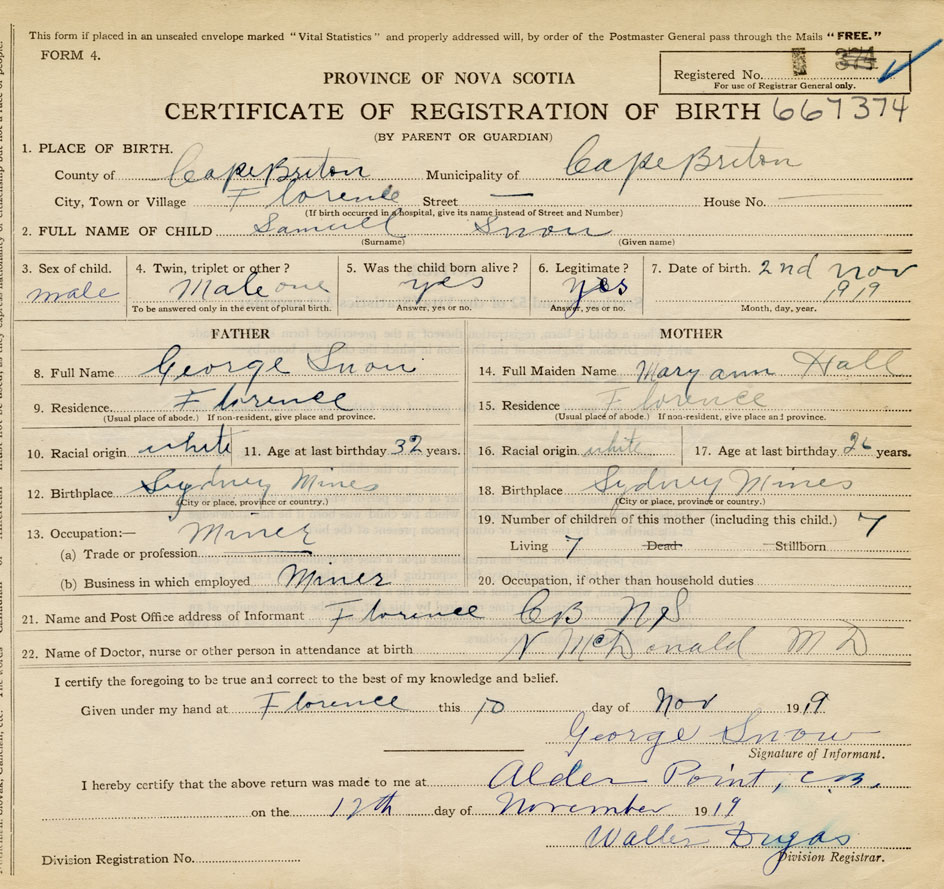 This form if placed in an unsealed envelope marked "Vital Statistics" and properly addressed will, by order of the Postmaster General pass through the Mails "FREE."
FORM 4.
Registered No. 374
For use of Registrar General only.
PROVINCE OF NOVA SCOTIA
CERTIFICATE OF REGISTRATION OF BIRTH 667374
(BY PARENT OR GUARDIAN)
1. PLACE OF BIRTH.
County of Cape Briton Municipality of Cape Briton
City, Town or Village Florence Street — House No. —
(If birth occurred in a hospital, give its name instead of Street and Number)
2. FULL NAME OF CHILD Samuell Snow
(Surname) (Given name)
3. Sex of child. 4. Twin, triplet or other? 5. Was the child born alive? 6. Legitimate? 7. Date of birth. 2nd nov
male Male one yes yes 1919
To be answered only in the event of plural birth. Answer, yes or no. Answer, yes or no. Month, day, year.
FATHER MOTHER
8. Full Name George Snow 14. Full Maiden Name Mary ann Hall
9. Residence. Florence 15. Residence Florence
(Usual place of abode.) If non-resident, give place and province. (Usual place of abode.) If non-resident, give place and province.
10. Racial origin white 11. Age at last birthday 32 years. 16. Racial origin white 17. Age at last birthday 26 years.
12. Birthplace Sydney Mines 18. Birthplace Sydney Mines
(City or place, province or country.) (City or place, province or country.)
13. Occupation:— Miner 19. Number of children of this mother (including this child.) 7
(a) Trade or profession Living 7 Dead Stillborn
(b) Business in which employed Miner 20. Occupation, if other than household duties
21. Name and Post Office address of Informant Florence CB NS
22. Name of Doctor, nurse or other person in attendance at birth N McDonald MD
I certify the foregoing to be true and correct to the best of my knowledge and belief.
Given under my hand at Florence this 10 day of Nov 1919
George Snow
Signature of Informant.
I hereby certify that the above return was made to me at Alder Point, C.B.
on the 17th day of November 1919
Walter Dugas
Division Registrar.
Division Registration No.